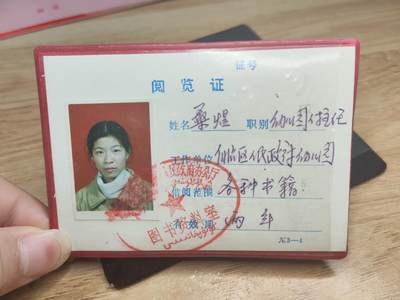 证号
阅览证
姓名 桑煜 职别 幼儿园主任
工作单位 区人民政府幼儿园
借阅范围 各种书籍
有效期 两年
办公厅
图书资料室